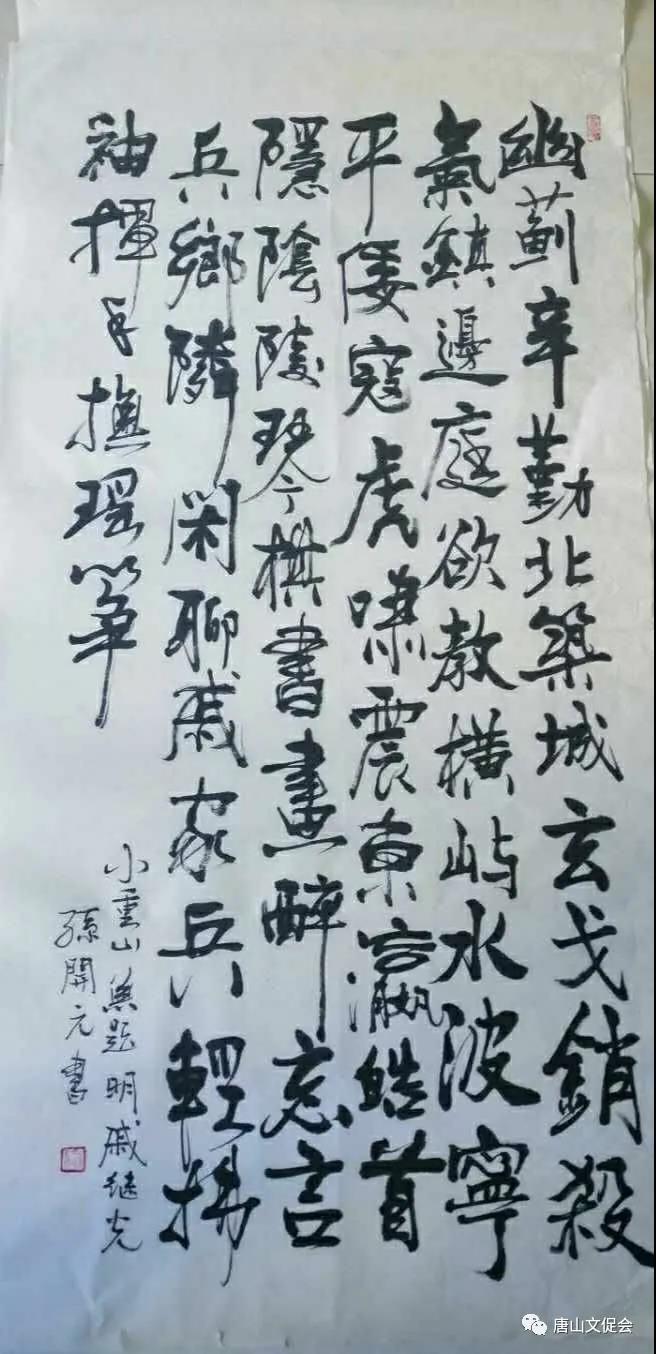 幽薊辛勤北築城玄戈銷殺
氣鎮邊庭欲教橫屿水波寧
平倭寇虎嘯震東瀛皓首
隱陰陵琴棋書畫醉忘言
兵鄉隣閑聊戚家兵輕拂
袖揮手撫瑤箏
小重山 無题 明戚继光
孫開元書
唐山文促会